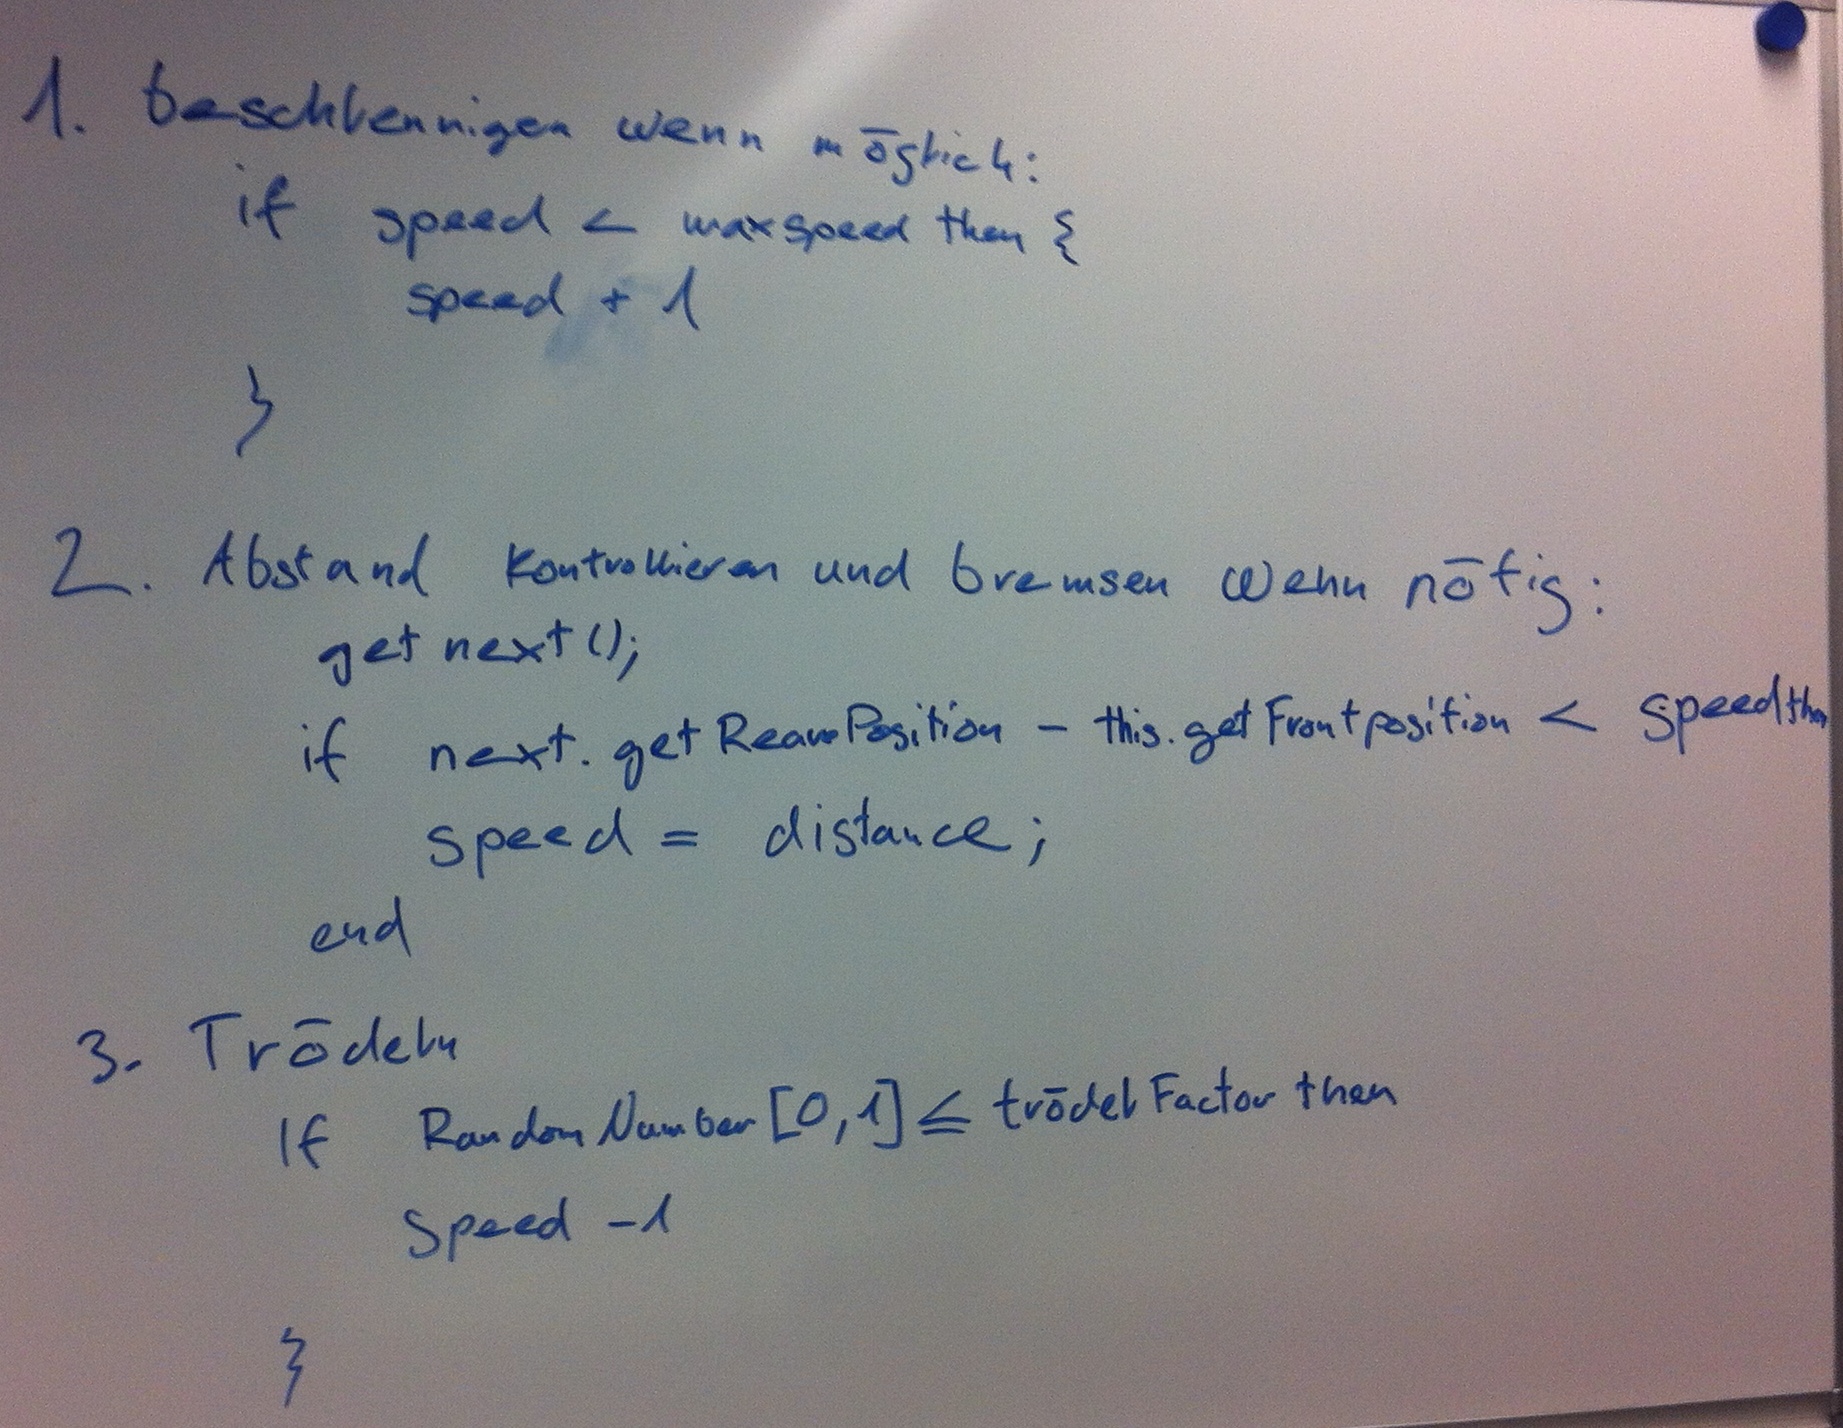 1. beschleunigen wenn möglich:
if speed < maxspeed then {
speed + 1
}
2. Abstand kontrollieren und bremsen wenn nötig:
get next();
if next.getRearPosition - this.getFrontposition < speed then
speed = distance;
end
3. Trödeln
If RandomNumber[0,1] ≤ trödelFactor then
speed -1
}